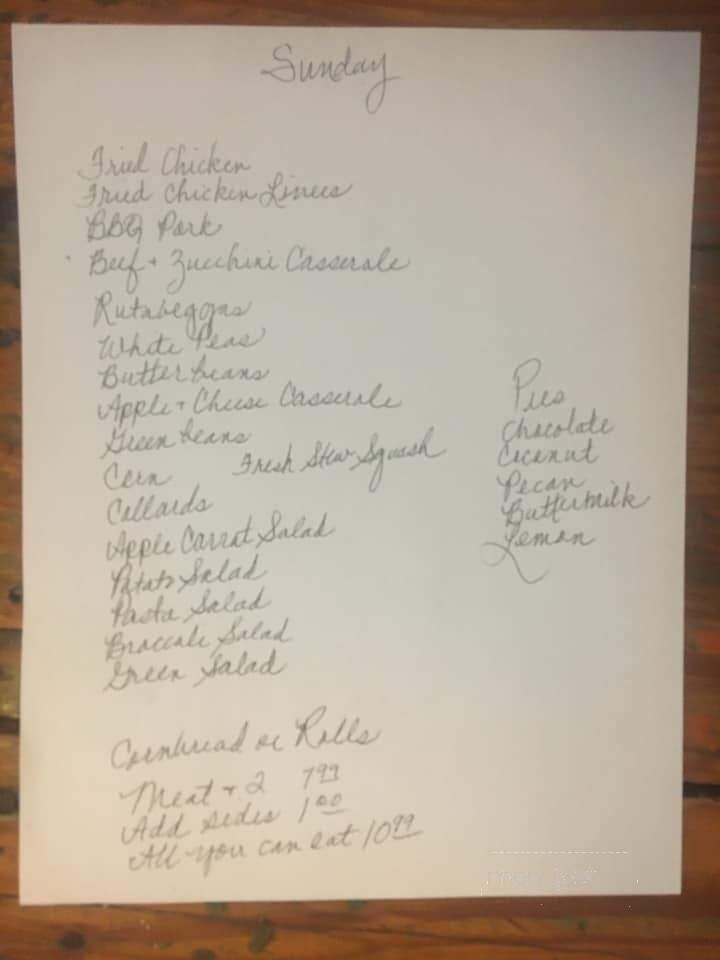 Sunday
Fried Chicken
Fried Chicken Livers
BBQ Pork
Beef + Zucchini Casserole
Rutabeggas
White Peas
Butter beans
Apple + Cheese Casserole
Green beans
Corn
Fresh Stew Squash
Collards
Apple Carrot Salad
Potato Salad
Pasta Salad
Broccoli Salad
Green Salad
Pies
Chocolate
Coconut
Pecan
Buttermilk
Lemon
Cornbread or Rolls
Meat + 2 7 99
Add sides 1 00
All you can eat 10 99